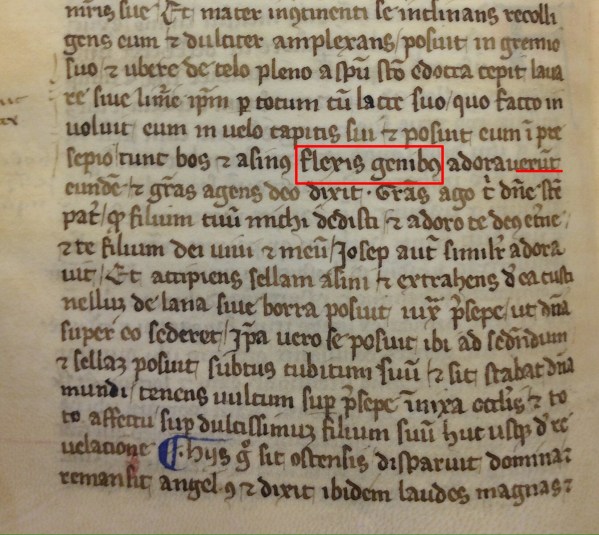 mris sue Et mater inclinens se inclinans recolli
gens eum ⁊ dulciter amplexans/ posuit in gremio
suo ⁊ ubere de celo pleno a spũ sc̃o edocta cepit laua
re siue linire ip̃m p totum cũ lacte suo/ quo facto in
uoluit eum in uelo capitis sui ⁊ posuit eum ĩ pre
sepio/ tunc bos ⁊ asinꝰ flexis genibꝰ adorauerũt
eundẽ ⁊ gr̃as agens deo dixit · Gr̃as ago t̃ dñe sc̃e
pat̃/ ꝙ filium tuũ michi dedisti ⁊ adoro te deꝰ et̃ne/
⁊ te filium dei uiui ⁊ meũ/ Josep aut̃ simil̃r adora
uit/ Et accipiens sellam asini ⁊ extrahens d̾ ea cussi
nellũ de lana siue borra posuit iux̃ p̃sepe/ ut dña
super eo sederet/ Ip̃a uero se posuit ibi ad sedẽdum
⁊ sellaz posuit subtus cubitum suũ/ ⁊ sic stabat dña
mundi/ tenens uultum sup̃ p̃sepe ĩnixa occlis ⁊ to
to affectu sup̃ dulcissimuz filium suũ huc usqꝫ d̾ re
uelacione ¶ Hijs g̊ sic ostensis disparuit domina ⁊
remansit angelꝰ ⁊ dixit ibidem laudes magnas ⁊